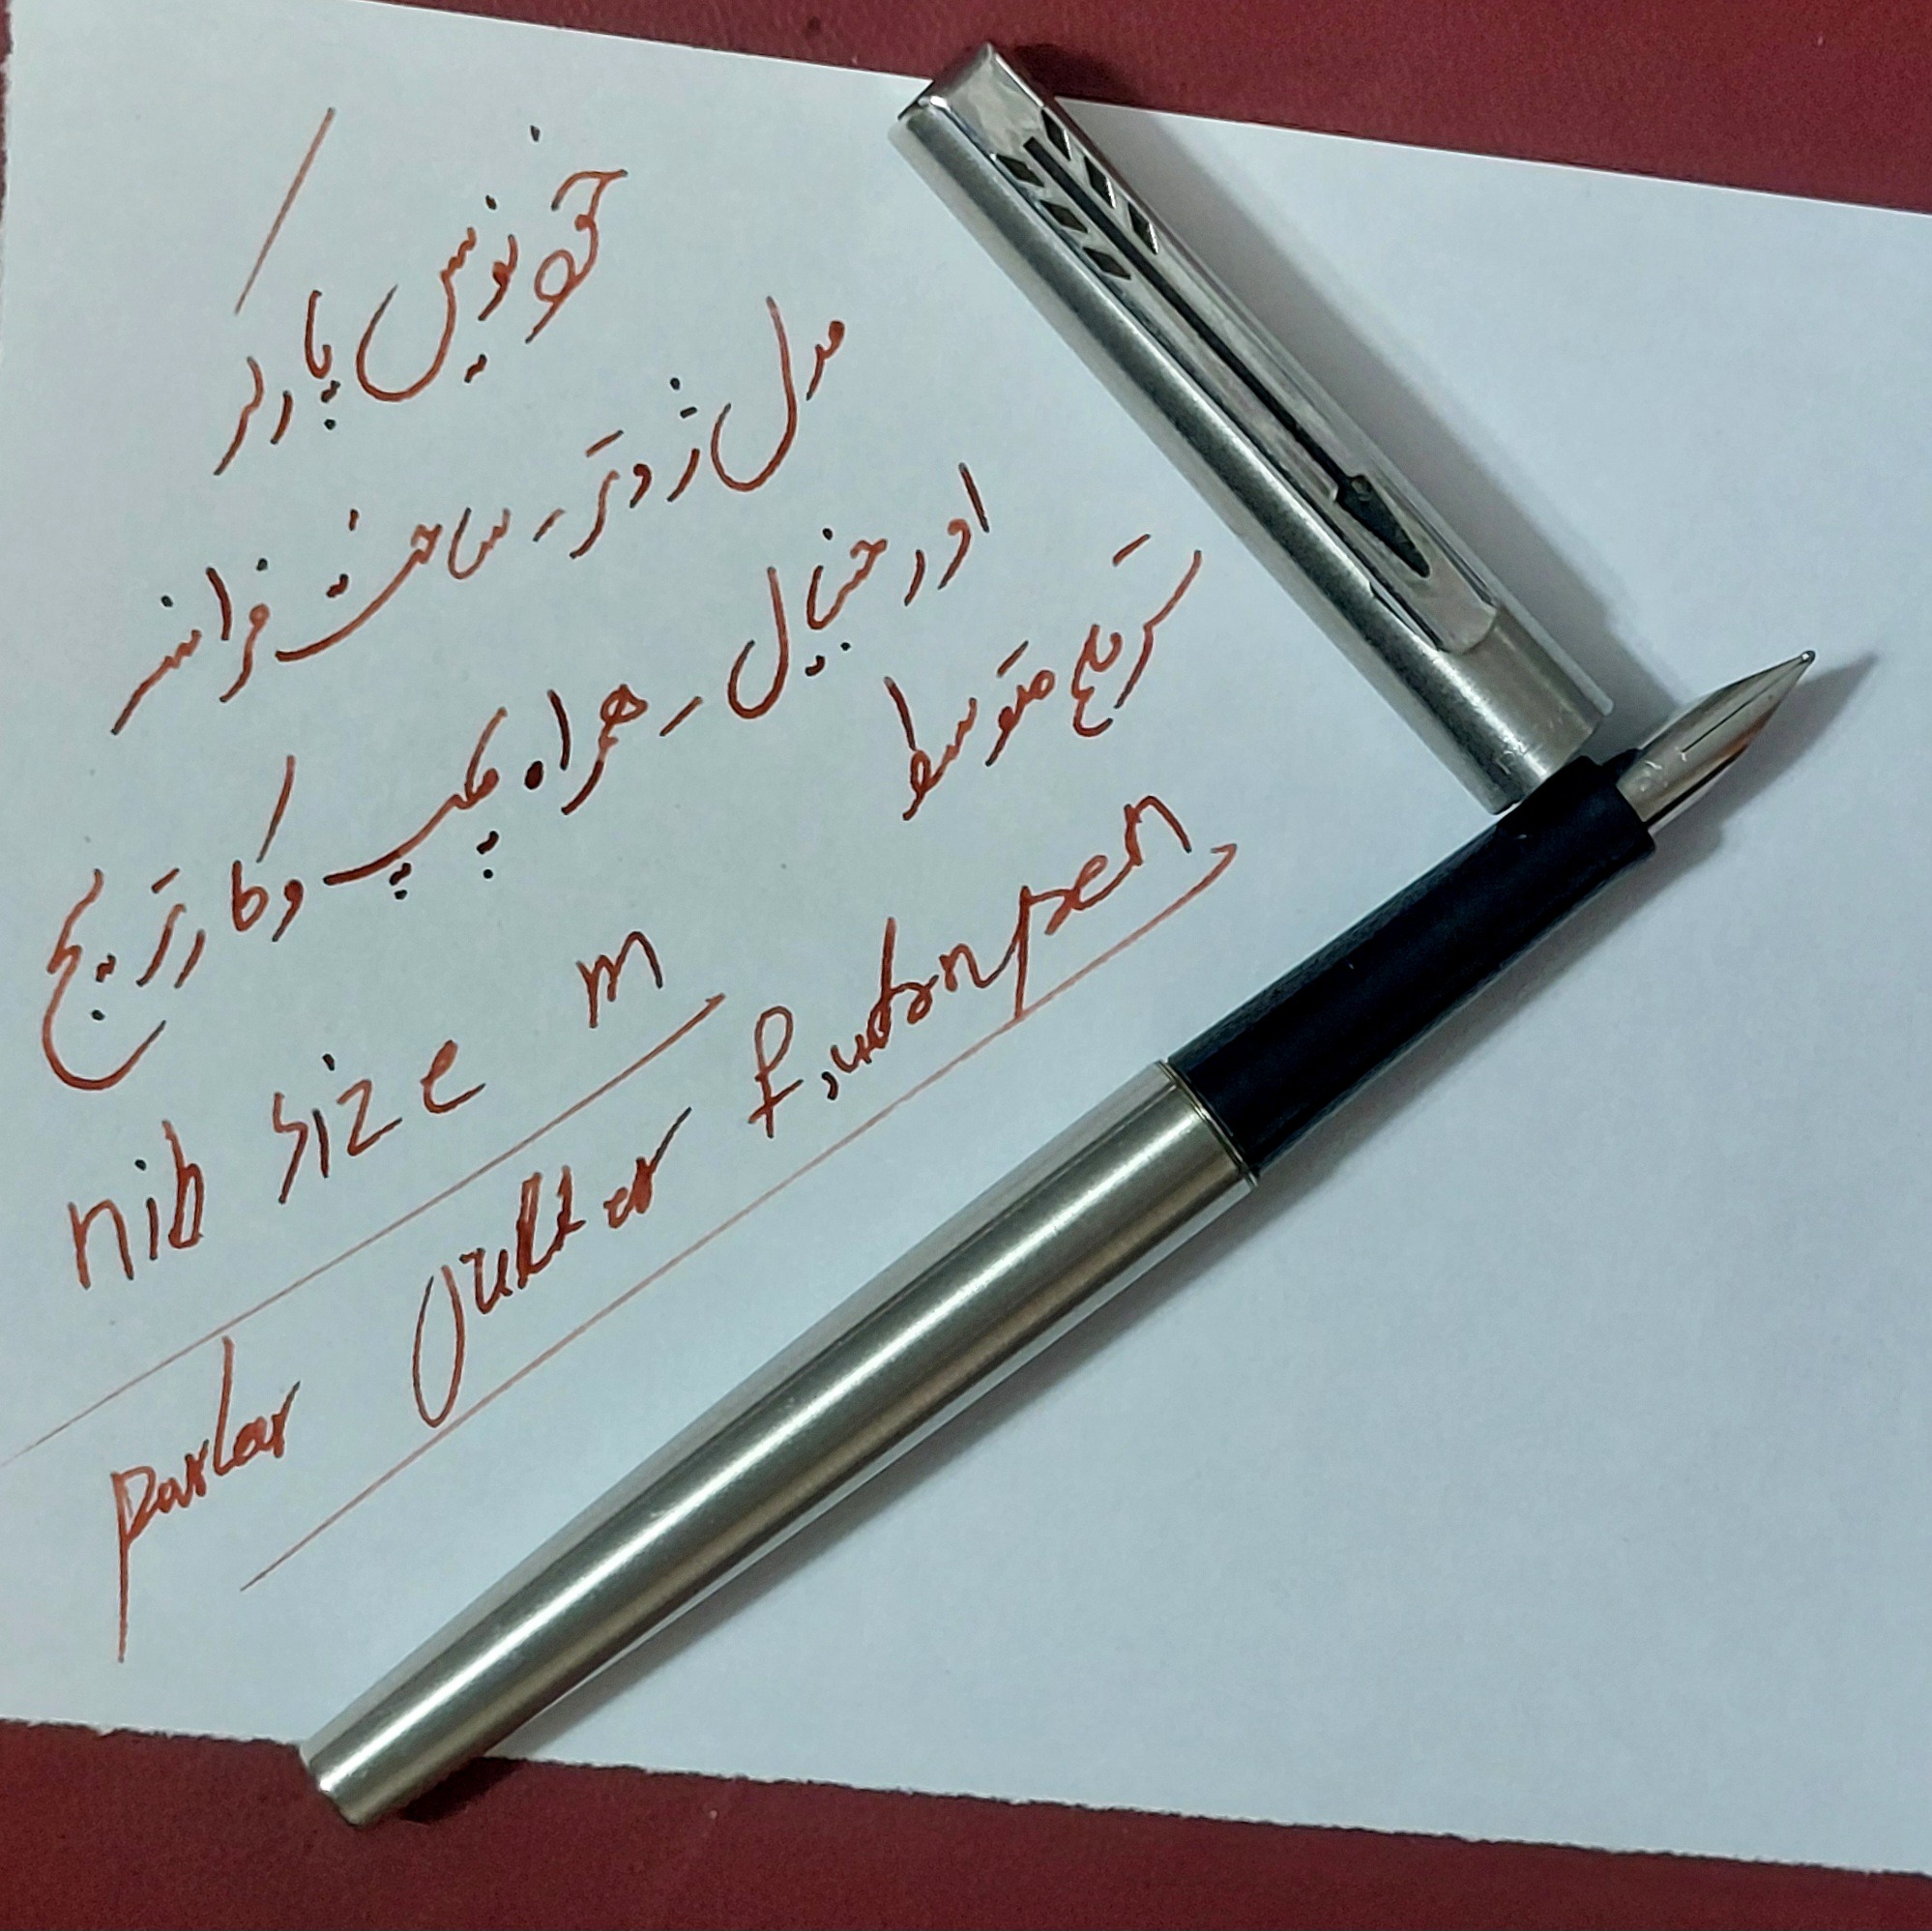 خودنویس پارکر
مدل ژوتر - ساخت فرانسه
اورجینال - همراه پمپ و کارتریج
سرقلم متوسط
nib size m
parker Jutter fountain pen